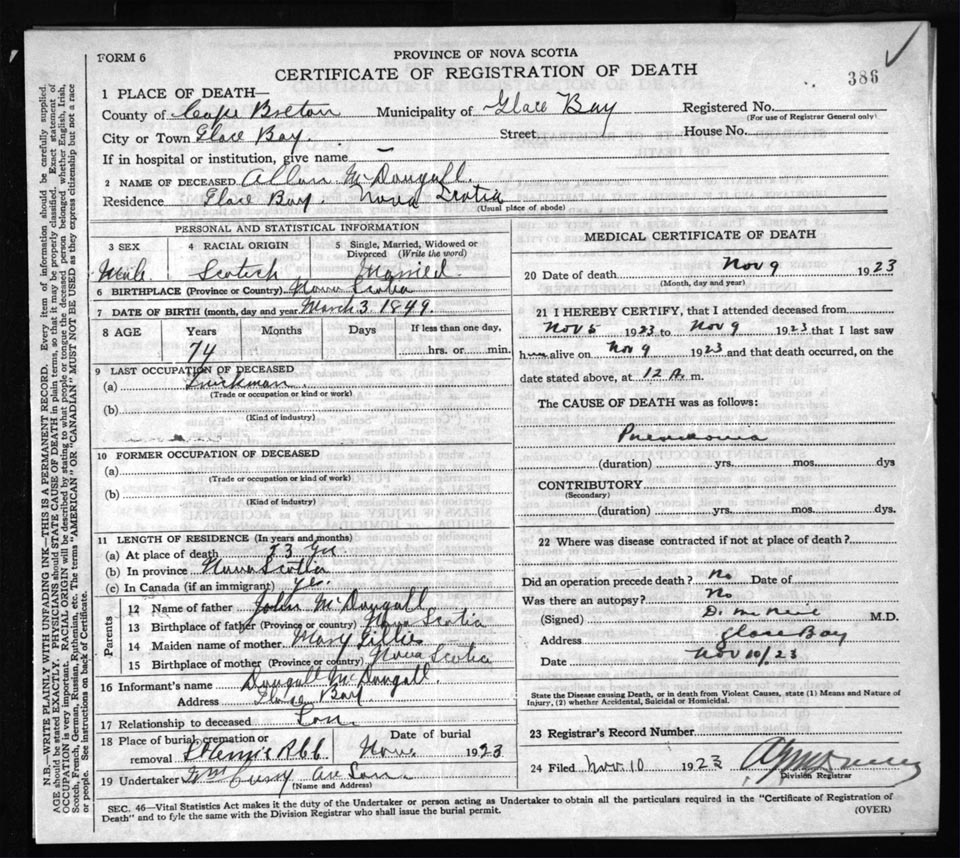 FORM 6
PROVINCE OF NOVA SCOTIA
CERTIFICATE OF REGISTRATION OF DEATH
386
1 PLACE OF DEATH—
County of Cape Breton Municipality of Glace Bay Registered No.
(For use of Registrar General only)
City or Town Glace Bay. Street House No.
If in hospital or institution, give name —
2 NAME OF DECEASED Allan McDougall.
Residence Glace Bay. Nova Scotia
(Usual place of abode)
PERSONAL AND STATISTICAL INFORMATION
3 SEX 4 RACIAL ORIGIN 5 Single, Married, Widowed or Divorced (Write the word)
Male Scotch Married.
6 BIRTHPLACE (Province or Country) Nova Scotia
7 DATE OF BIRTH (month, day and year) March 3. 1849.
8 AGE Years Months Days If less than one day,
74 hrs. or min.
9 LAST OCCUPATION OF DECEASED
(a)
(Trade or occupation or kind or work)
(b)
(Kind of industry)
10 FORMER OCCUPATION OF DECEASED
(a)
(Trade or occupation or kind of work)
(b)
(Kind of industry)
11 LENGTH OF RESIDENCE (In years and months)
(a) At place of death
(b) In province Nova Scotia
(c) In Canada (if an immigrant) yes.
Parents
12 Name of father John McDougall
13 Birthplace of father (Province or country) Nova Scotia
14 Maiden name of mother Mary Gillies
15 Birthplace of mother (Province or country) Nova Scotia
16 Informant's name Dougall McDougall.
Address Glace Bay
17 Relationship to deceased Son.
18 Place of burial, cremation or removal Date of burial
Nov 1923
19 Undertaker
(Name and Address)
MEDICAL CERTIFICATE OF DEATH
20 Date of death Nov 9 1923
(Month, day and year)
21 I HEREBY CERTIFY, that I attended deceased from
Nov 5 1923 to Nov 9 1923 that I last saw
him alive on Nov 9 1923 and that death occurred, on the
date stated above, at 12 A. m.
The CAUSE OF DEATH was as follows:
Pneumonia
(duration) yrs. mos. dys
CONTRIBUTORY
(Secondary)
(duration) yrs. mos. dys.
22 Where was disease contracted if not at place of death?
Did an operation precede death? No Date of
Was there an autopsy? No
(Signed) D. McNeil M.D.
Address Glace Bay
Date Nov 10/23
State the Disease causing Death, or in death from Violent Causes, state (1) Means and Nature of
Injury, (2) whether Accidental, Suicidal or Homicidal.
23 Registrar's Record Number
24 Filed Nov. 10 1923
Division Registrar
SEC. 46—Vital Statistics Act makes it the duty of the Undertaker or person acting as Undertaker to obtain all the particulars required in the "Certificate of Registration of
Death" and to fyle the same with the Division Registrar who shall issue the burial permit.
(OVER)
N.B.—WRITE PLAINLY WITH UNFADING INK—THIS IS A PERMANENT RECORD. Every item of information should be carefully supplied.
AGE should be stated EXACTLY. PHYSICIANS should STATE CAUSE OF DEATH in plain terms, so that it may be properly classified. Exact statement of
OCCUPATION is very important. RACIAL ORIGIN will be described by stating to what people or tongue the deceased person belonged whether English, Irish,
Scotch, French, German, Russian, Ruthenian, etc. The terms "AMERICAN" OR "CANADIAN" MUST NOT BE USED as they express citizenship but not a race
or people. See instructions on back of Certificate.